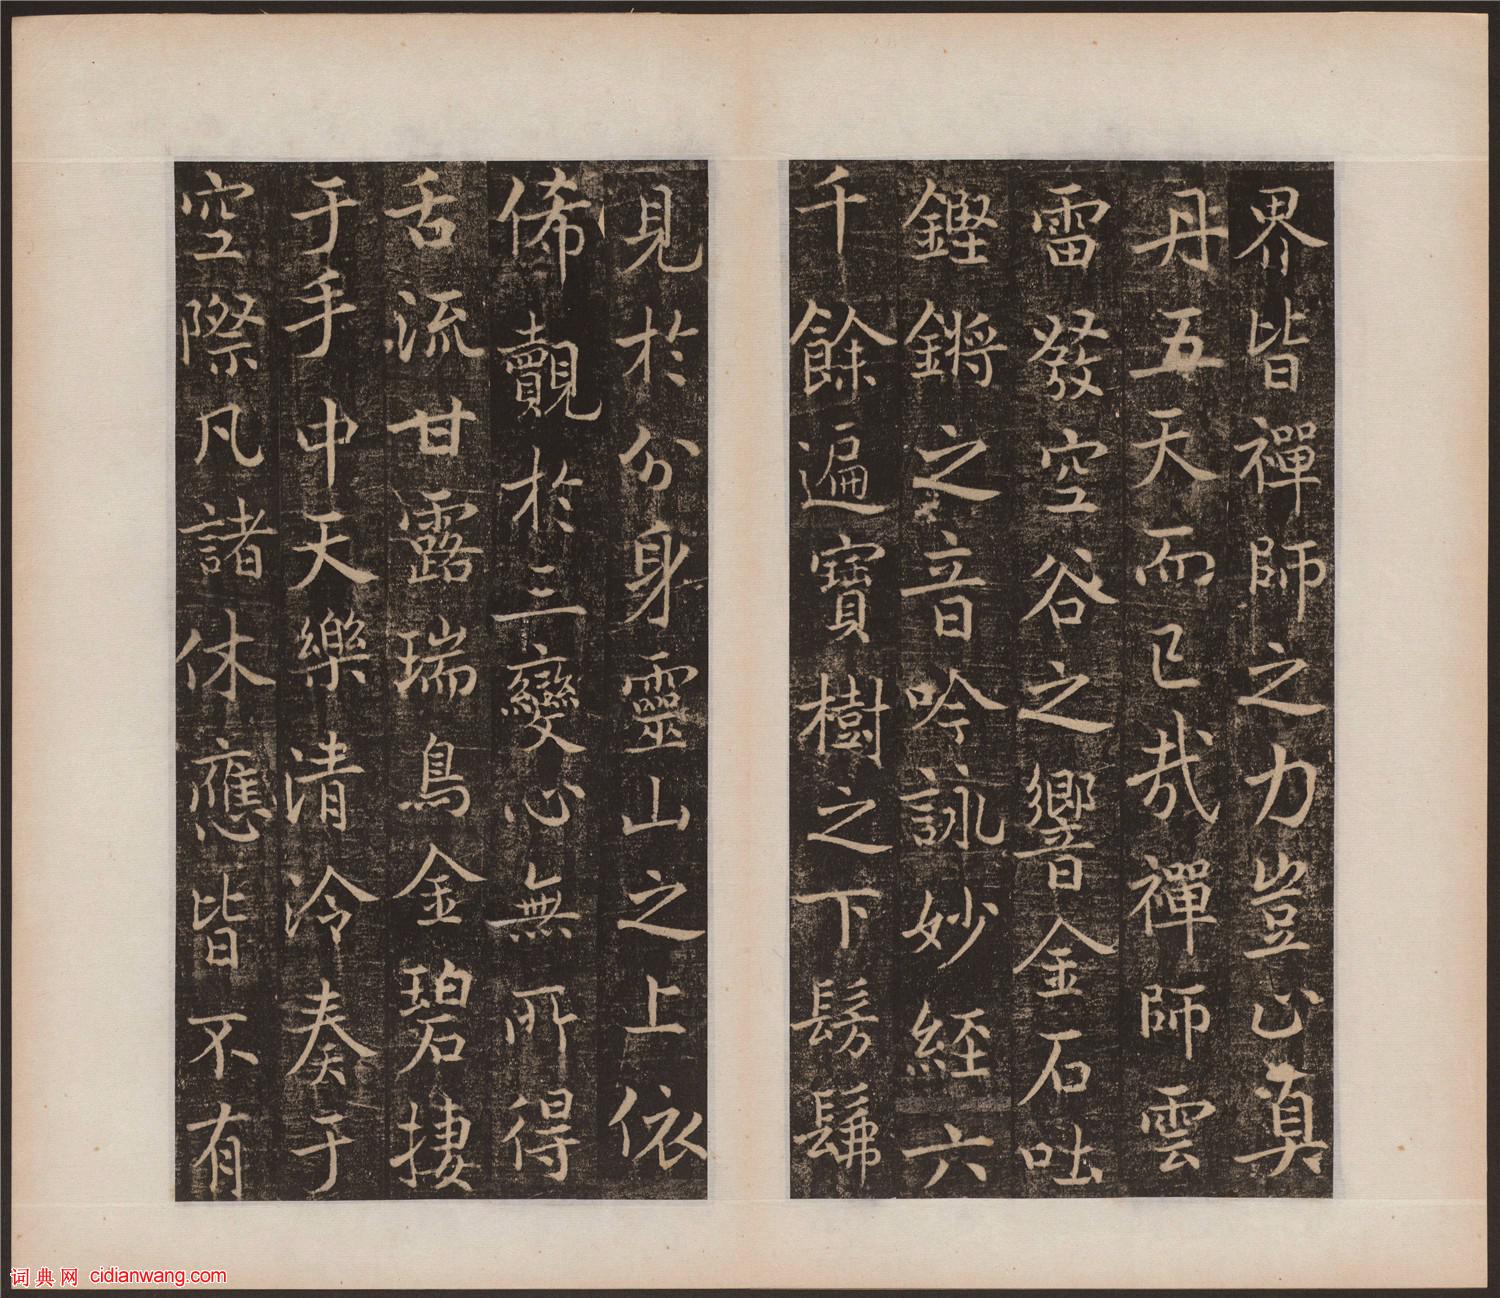 界皆禪師之力豈止真
丹五天而已哉禪師雲
雷發空谷之響金石吐
鏗鏘之音吟詠妙經六
千餘遍寶樹之下髣髴
見於分身靈山之上依
俙覿於三變心無所得
舌流甘露瑞鳥金碧捿
于手中天樂清泠奏于
空際凡諸休應皆不有
词典网 cidianwang.com